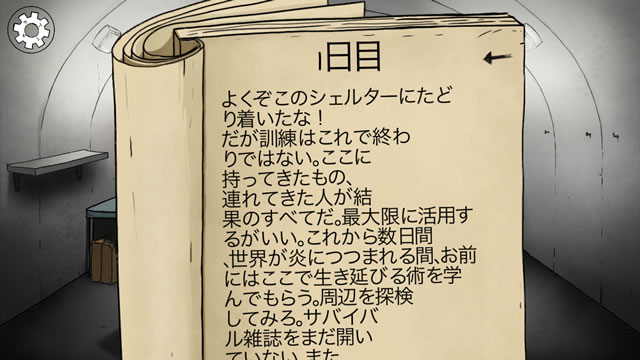 1日目
よくぞこのシェルターにたど
り着いたな！
だが訓練はこれで終わ
りではない。ここに
持ってきたもの、
連れてきた人が結
果のすべてだ。最大限に活用す
るがいい。これから数日間
、世界が炎につつまれる間、お前
にはここで生き延びる術を学
んでもらう。周辺を探検
してみろ。サバイバ
ル雑誌をまだ開い
ていない、また